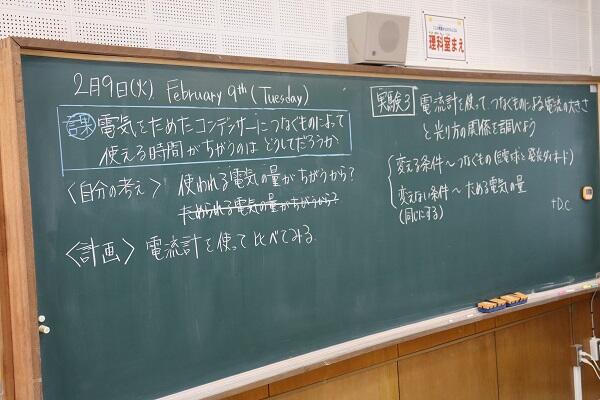 理科室まえ
2月9日(火) February 9th (Tuesday)
課 電気をためたコンデンサーにつなぐものによって
使える時間がちがうのはどうしてだろうか
〈自分の考え〉 使われる電気の量がちがうから?
ためられる電気の量がちがうから?
〈計画〉 電流計を使って比べてみる
実験3 電流計を使ってつなぐものによる電流の大きさ
と光り方の関係を調べよう
変える条件〜つなぐもの(豆電球と発光ダイオード)
変えない条件〜ためる電気の量
(同じにする)
+D.C